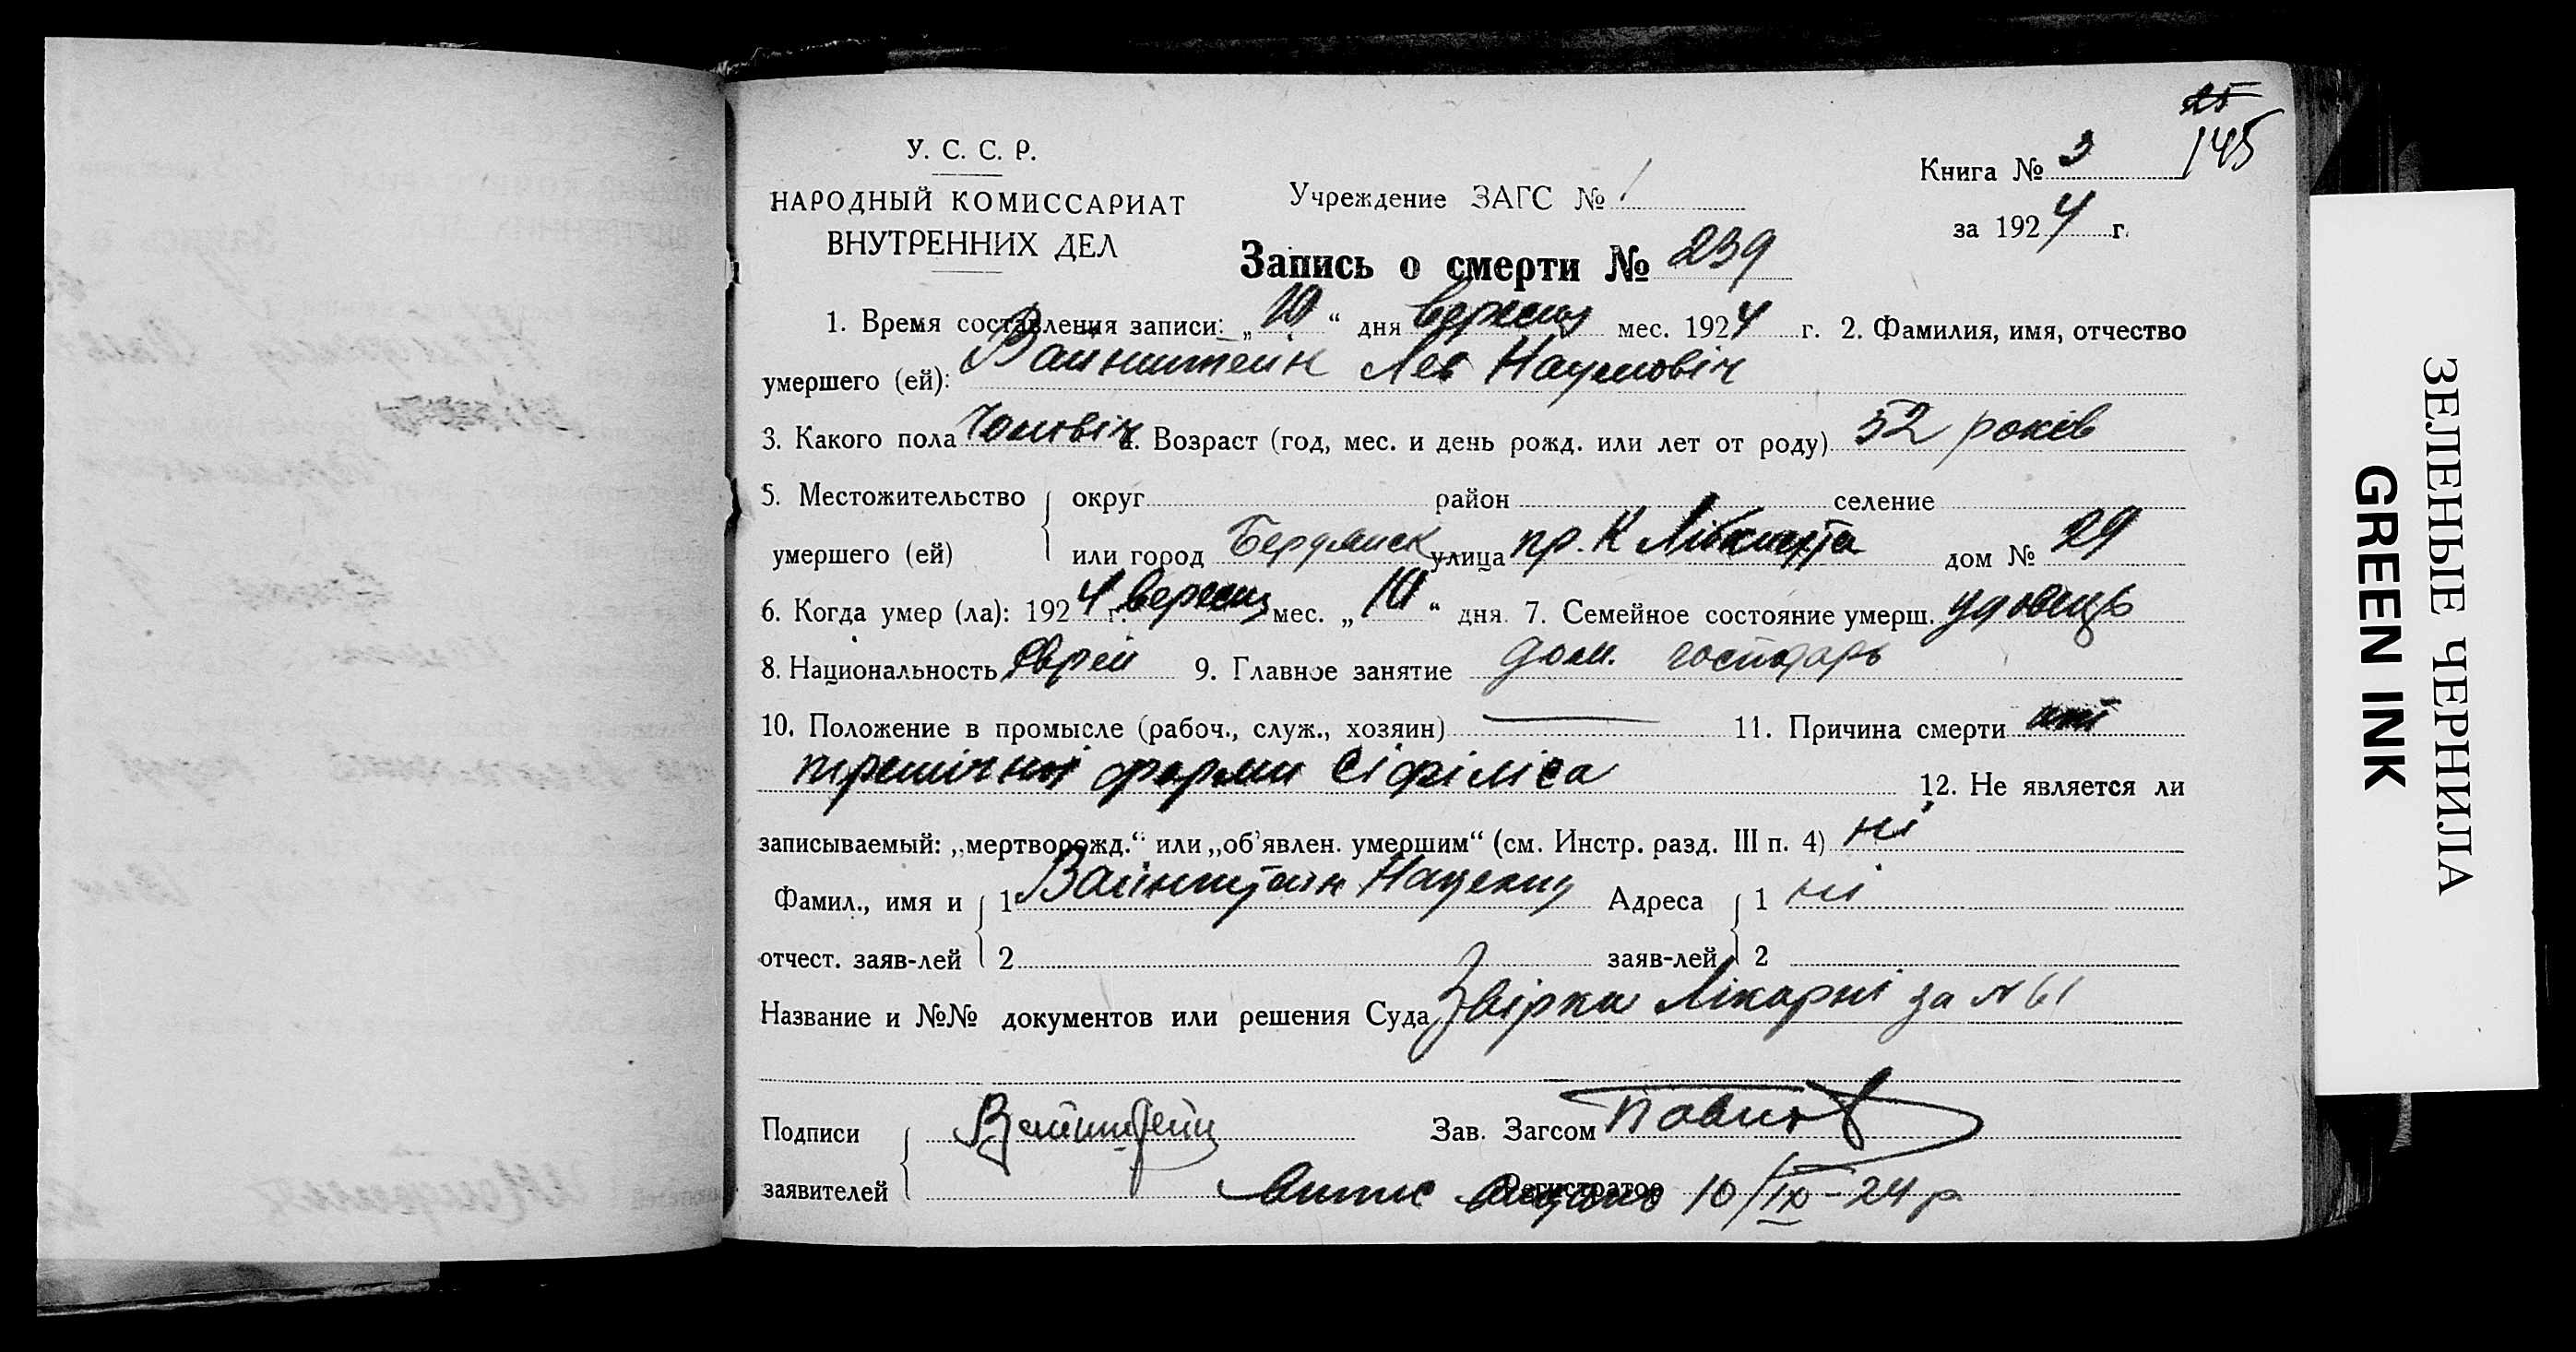 25
145
У. С. С. Р.
НАРОДНЫЙ КОМИССАРИАТ
ВНУТРЕННИХ ДЕЛ
Учреждение ЗАГС № 1
Книга № 3
за 1924 г.
Запись о смерти № 239
1. Время составления записи: „10“ дня вересня мес. 1924 г. 2. Фамилия, имя, отчество
умершего (ей): Вайнштейн Лев Наумовіч
3. Какого пола Чоловіч 4. Возраст (год, мес. и день рожд. или лет от роду) 52 років
5. Местожительство округ район селение
умершего (ей) или город Бердянск улица пр. К Лібкнехта дом № 29
6. Когда умер (ла): 1924 г. вересня мес. „10“ дня 7. Семейное состояние умерш. удовець
8. Национальность Єврей 9. Главное занятие дом. господарь
10. Положение в промысле (рабоч., служ., хозяин) — 11. Причина смерти
третічної форми сіфіліса 12. Не является ли
записываемый: „мертворожд.“ или „об'явлен. умершим“ (см. Инстр. разд. III п. 4) ні
Фамил., имя и 1 Вайнштейн Адреса 1 ні
отчест. заяв-лей 2 заяв-лей 2
Название и №№ документов или решения Суда Лікарні за № 61
Подписи Вайнштейн Зав. Загсом Павлов
заявителей Регистратор 10/IX-24 р
ЗЕЛЕНЫЕ ЧЕРНИЛА
GREEN INK